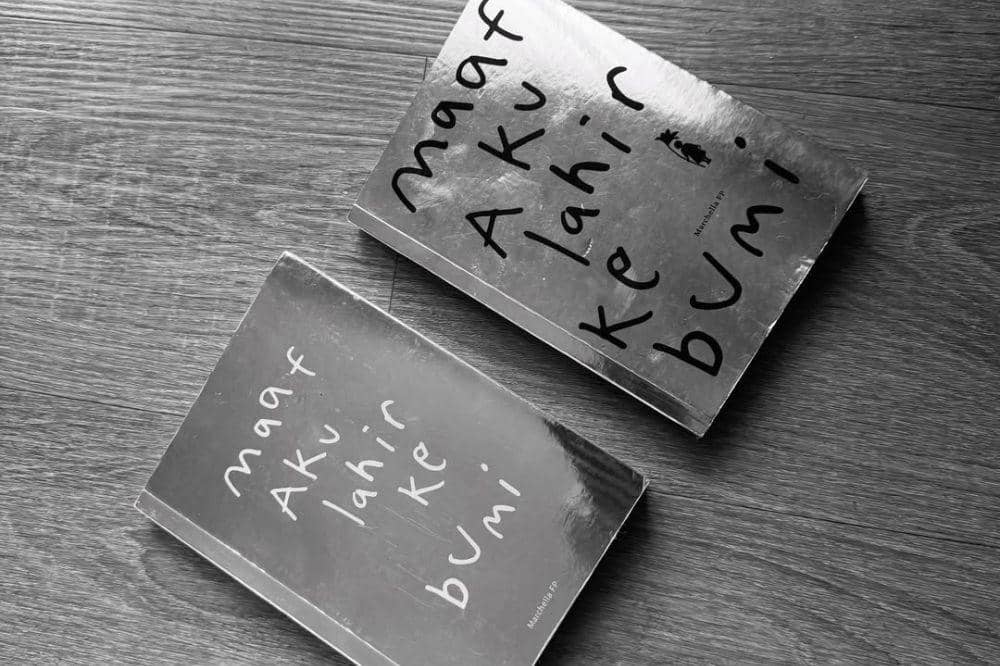 maaf
AKu
lahir
Ke
bumi
Marchella FP
maaf
AKu
lahir
Ke
bumi
Marchella FP